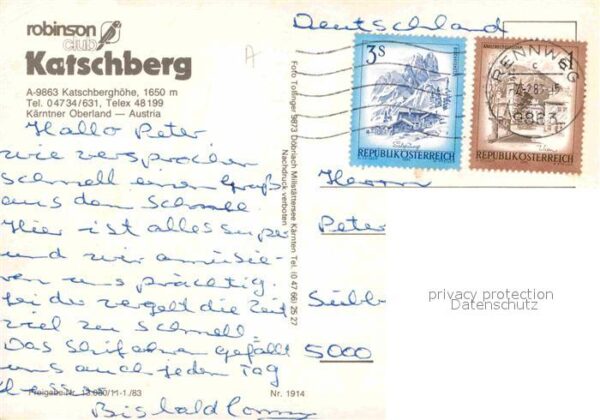 robinson
club
Katschberg
A-9863 Katschberghöhe, 1650 m
Tel. 04734/631, Telex 48199
Kärntner Oberland — Austria
Hallo Peter
wie versprochen
schnell einen Gruß
aus dem Schnee.
Hier ist alles super
und wir amüsie-
ren uns prächtig.
Leider vergeht die Zeit
viel zu schnell.
Das Skifahren gefällt
uns auch jeden Tag
besser.
Bis bald
Freigabe-Nr. 13.080/11-1/83
Foto Tollinger 9873 Döbriach Millstättersee Kärnten Tel. (0 47 66 25 27
Nachdruck verboten
Nr. 1914
A
Deutschland
3 S
REPUBLIK ÖSTERREICH
RENNWEG
9863
REPUBLIK ÖSTERREICH
Herrn
Peter
5000
privacy protection
Datenschutz